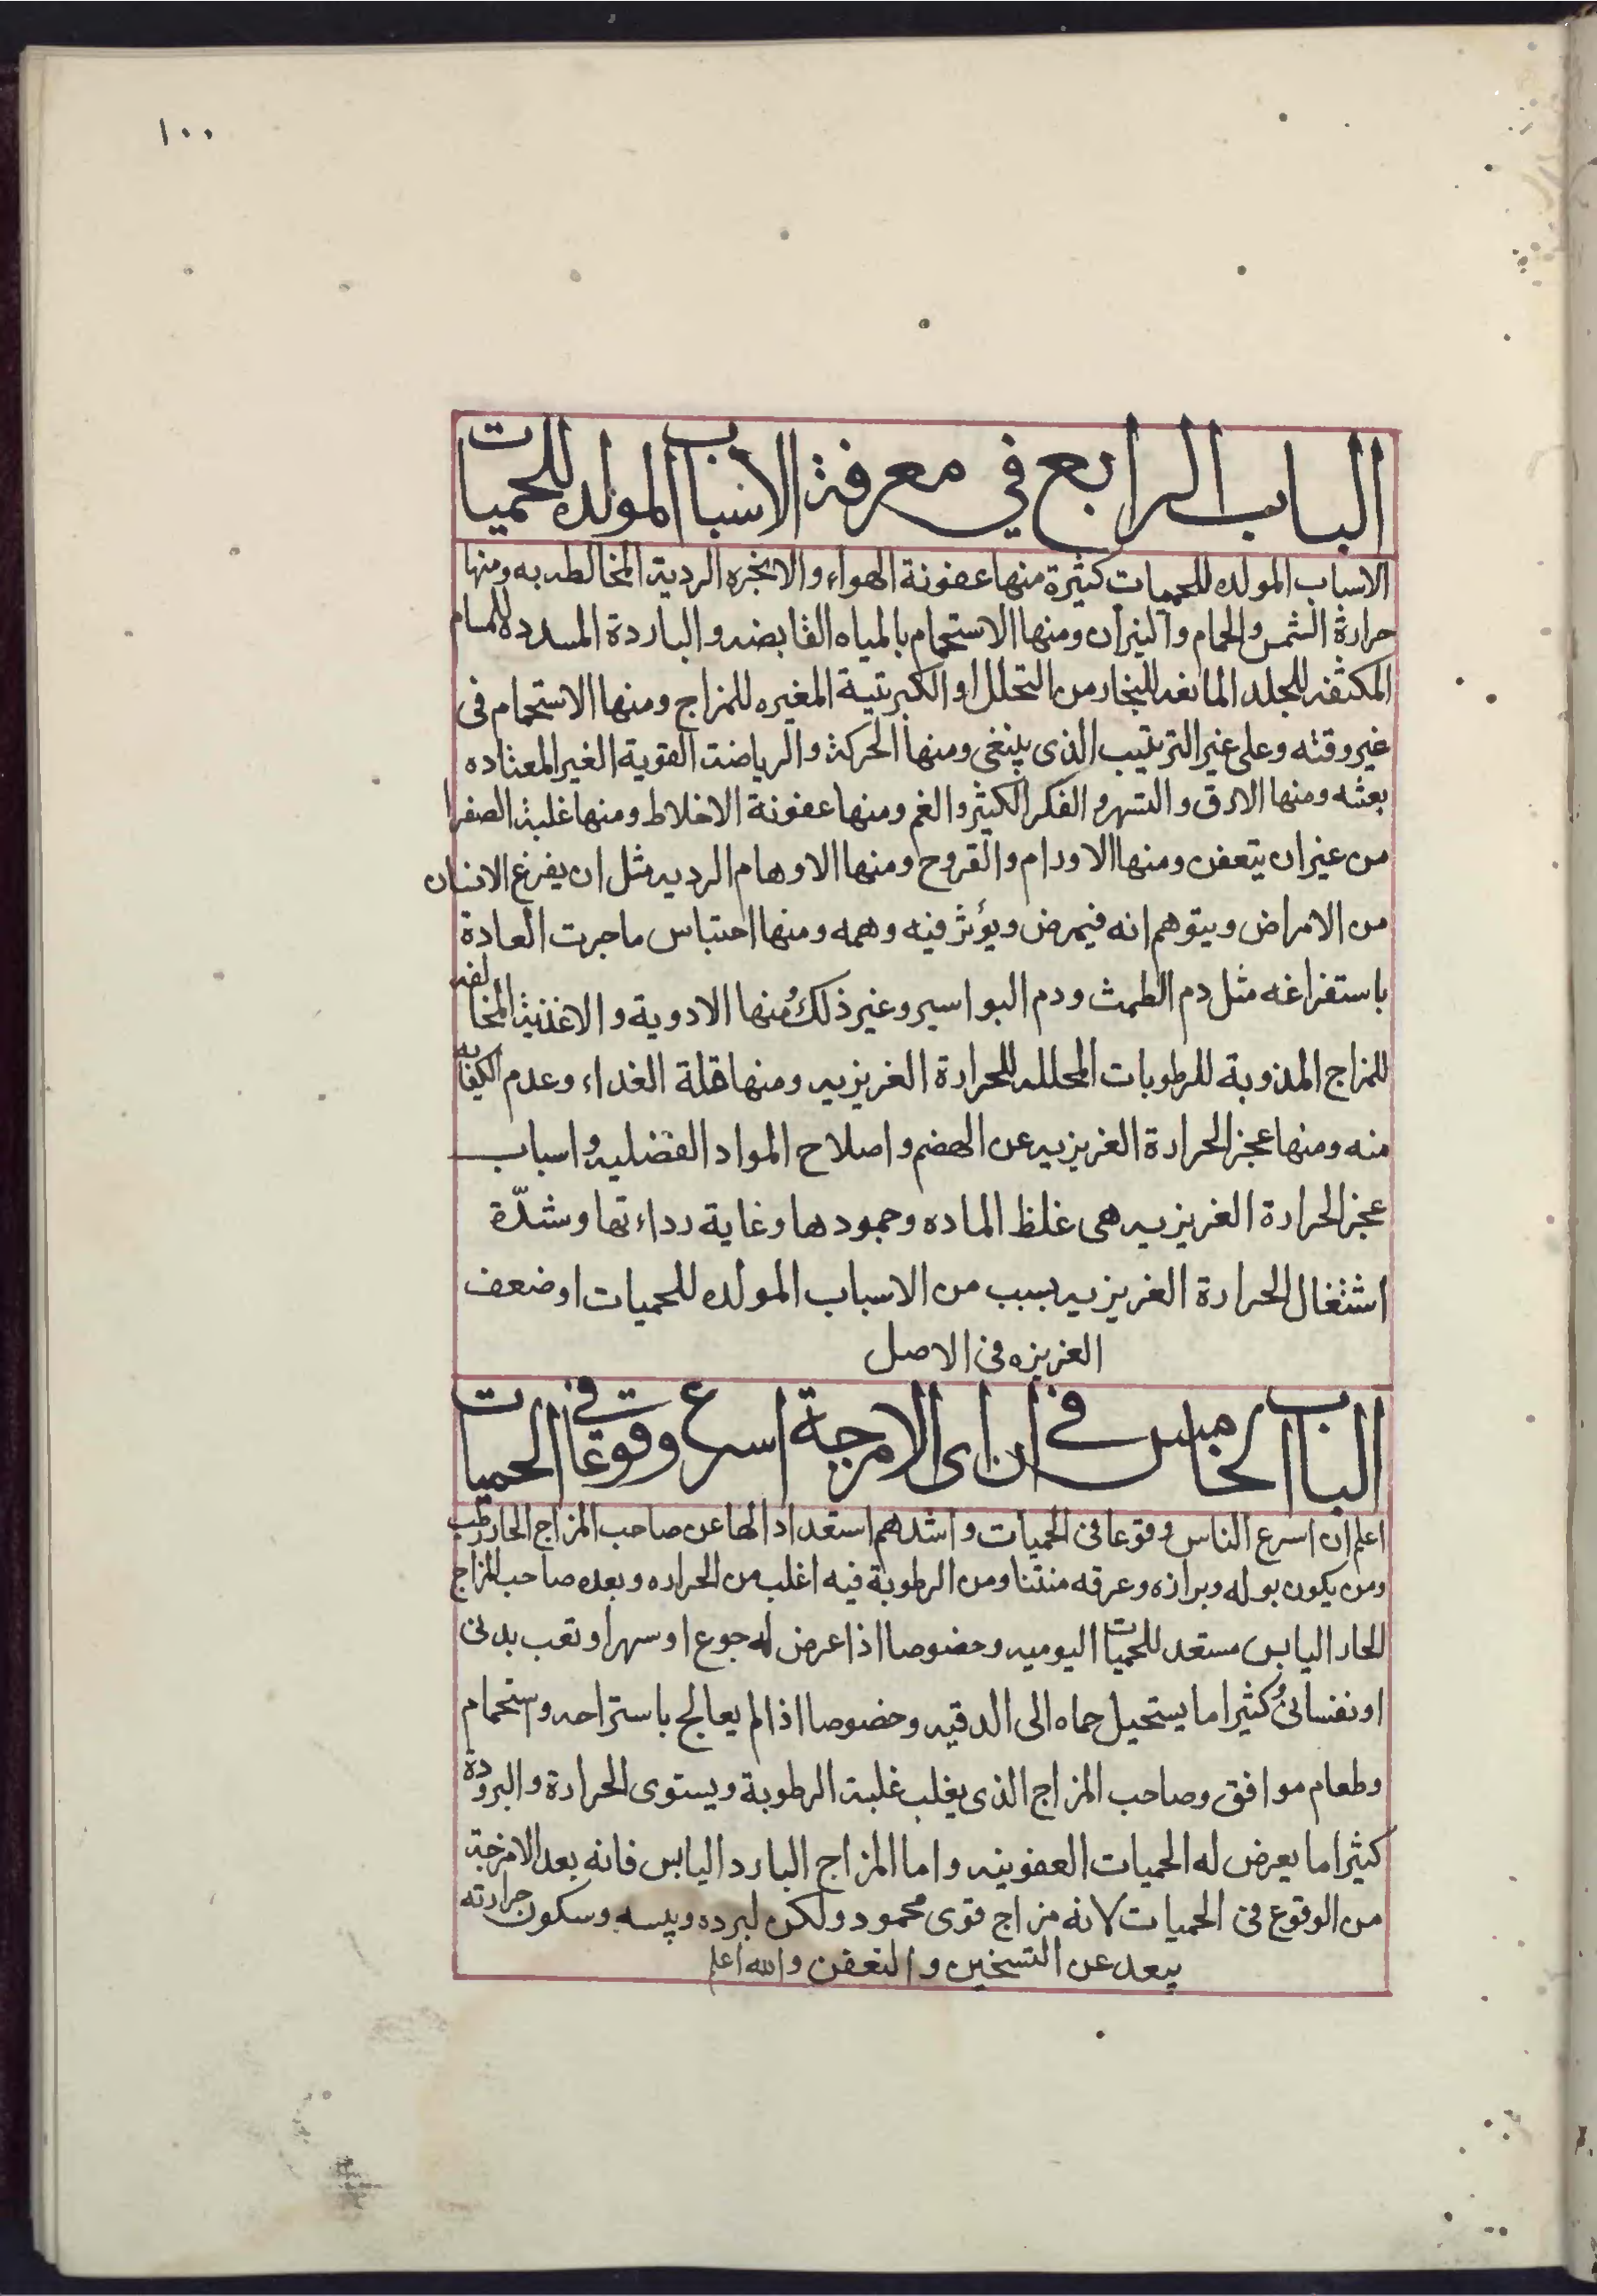 ١٠٠
الباب الرابع في معرفة الاسباب المولده للحميات
الاسباب المولده للحميات كثيرة منها عفونة الهواء والابخره الردية المخالطه به ومنها
حرارة الشمس والحمام والنيران ومنها الاستحمام بالمياه القابضه والباردة المسدده للمسام
المكثفه للجلد المانعه للبخار من التحلل او الكبريتية المغيره للمزاج ومنها الاستحمام فى
غير وقته وعلى غير الترتيب الذى ينبغى ومنها الحركة والرياضة القوية الغير المعتاده
بغتة ومنها الارق والسهر والفكر الكثير والغم ومنها عفونة الاخلاط ومنها غلبة الصفرا
من غير ان يتعفن ومنها الاورام والقروح ومنها الاوهام الرديه مثل ان يفزع الانسان
من الامراض ويتوهم انه فيمرض ويؤثر فيه وهمه ومنها احتباس ما جرت العادة
باستفراغه مثل دم الطمث ودم البواسير وغير ذلك ومنها الادوية والاغذية المخالفه
للمزاج المذوبة للرطوبات المحلله للحرارة الغريزيه ومنها قلة الغداء وعدم الكفايه
منه ومنها عجز الحرارة الغريزيه عن الهضم واصلاح المواد الفضليه واسباب
عجز الحرارة الغريزيه هى غلظ الماده وجمودها وغاية رداءتها وشدّة
اشتغال الحرارة الغريزيه بسبب من الاسباب المولده للحميات او ضعف
الغريزه فى الاصل
الباب الخامس في ان اى الامزجة اسرع وقوعا في الحميات
اعلم ان اسرع الناس وقوعا فى الحميات واشدهم استعدادا لها عن صاحب المزاج الحار رطب
ومن يكون بوله وبرازه وعرقه منتنا ومن الرطوبة فيه اغلب من الحراره وبعده صاحب المزاج
الحار اليابس مستعد للحميات اليوميه وخصوصا اذا عرض له جوع او سهر او تعب بدنى
او نفسانى وكثيرا ما يستحيل حماه الى الدقيه وخصوصا اذا لم يعالج باستراحه واستحمام
وطعام موافق وصاحب المزاج الذى يغلب غلبة الرطوبة ويستوى الحرارة والبرودة
كثيرا ما يعرض له الحميات العفونيه واما المزاج البارد اليابس فانه بعد الامزجة
من الوقوع فى الحميات لانه مزاج قوى محمود ولكن لبرده ويبسه وسكون حرارته
يبعد عن التسخين والتعفن والله اعلم